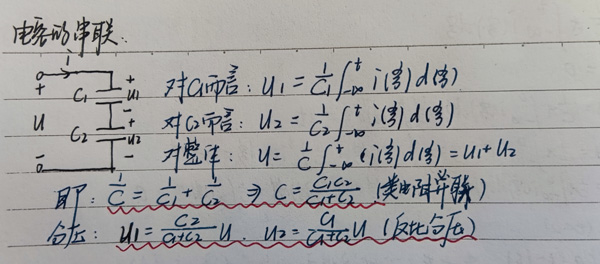 电容的串联:
i
+ C1 + u1 - 对C1而言: u1 = 1/C1 ∫_{-∞}^{t} i(ξ) d(ξ)
U C2 + u2 - 对C2而言: u2 = 1/C2 ∫_{-∞}^{t} i(ξ) d(ξ)
- 对整体: u = 1/C ∫_{-∞}^{t} i(ξ) d(ξ) = u1 + u2
即: 1/C = 1/C1 + 1/C2 ⇒ C = C1C2/(C1+C2) (类电阻并联)
分压: u1 = C2/(C1+C2) U. u2 = C1/(C1+C2) U (反比分压)